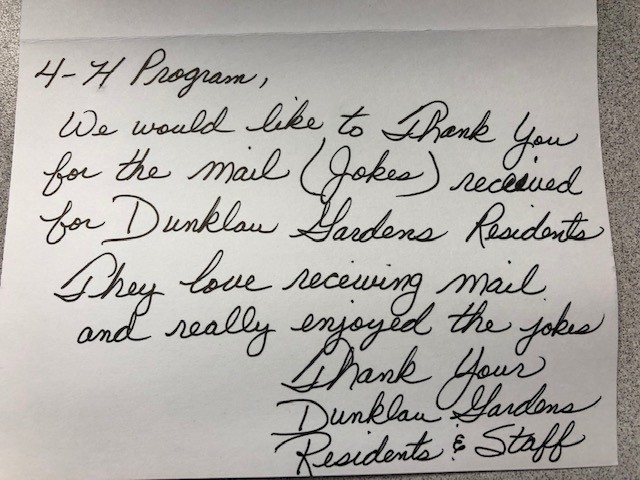 4-H Program,
We would like to Thank You
for the mail (Jokes) received
for Dunklau Gardens Residents
They love receiving mail
and really enjoyed the jokes
Thank Your
Dunklau Gardens
Residents & Staff